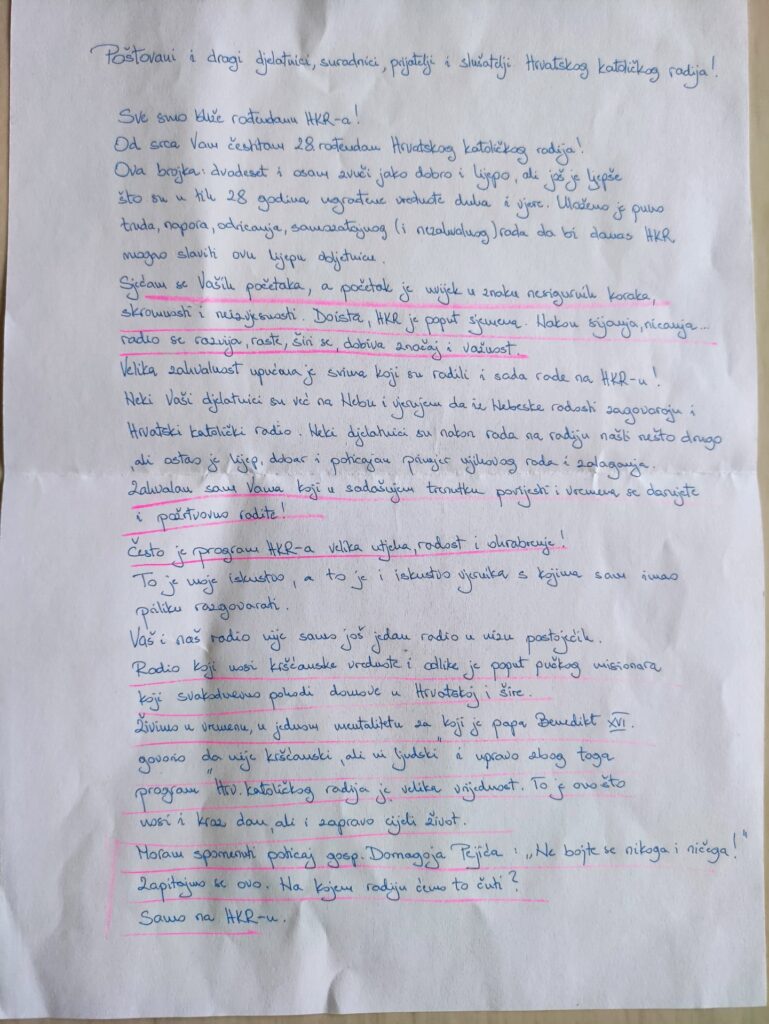 Poštovani i dragi djelatnici, suradnici, prijatelji i slušatelji Hrvatskog katoličkog radija!
Sve smo bliže rođendanu HKR-a!
Od srca Vam čestitam 28. rođendan Hrvatskog katoličkog radija!
Ova brojka: dvadeset i osam zvuči jako dobro i lijepo, ali još je ljepše
što su u tih 28 godina ugrađene vrednote duha i vjere. Uloženo je puno
truda, napora, odricanja, samozatajnog (i nezahvalnog) rada da bi danas HKR
mogao slaviti ovu lijepu obljetnicu.
Sjećam se Vaših početaka, a početak je uvijek u znaku nesigurnih koraka,
skromnosti i neizvjesnosti. Doista, HKR je poput sjemena. Nakon sijanja, nicanja...
radio se razvija, raste, širi se, dobiva značaj i važnost.
Velika zahvalnost upućena je svima koji su radili i sada rade na HKR-u!
Neki Vaši djelatnici su već na Nebu i vjerujem da iz Nebeske radosti zagovaraju i
Hrvatski katolički radio. Neki djelatnici su nakon rada na radiju našli nešto drugo
, ali ostao je lijep, dobar i poticajan primjer njihovog rada i zalaganja.
Zahvalan sam Vama koji u sadašnjem trenutku povijesti i vremena se darujete
i požrtvovno radite!
Često je program HKR-a velika utjeha, radost i ohrabrenje!
To je moje iskustvo, a to je i iskustvo vjernika s kojima sam imao
priliku razgovarati.
Vaš i naš radio nije samo još jedan radio u nizu postojećih.
Radio koji nosi kršćanske vrednote i odlike je poput pučkog misionara
koji svakodnevno pohodi domove u Hrvatskoj i šire.
Živimo u vremenu, u jednom mentalitetu za koji je papa Benedikt XVI.
govorio "da nije kršćanski, ali ni ljudski" i upravo zbog toga
program Hrv. katoličkog radija je velika vrijednost. To je ono što
nosi i kroz dan, ali i zapravo cijeli život.
Moram spomenuti poticaj gosp. Domagoja Pejića: „Ne bojte se nikoga i ničega!"
Zapitajmo se ovo. Na kojem radiju ćemo to čuti?
Samo na HKR-u.